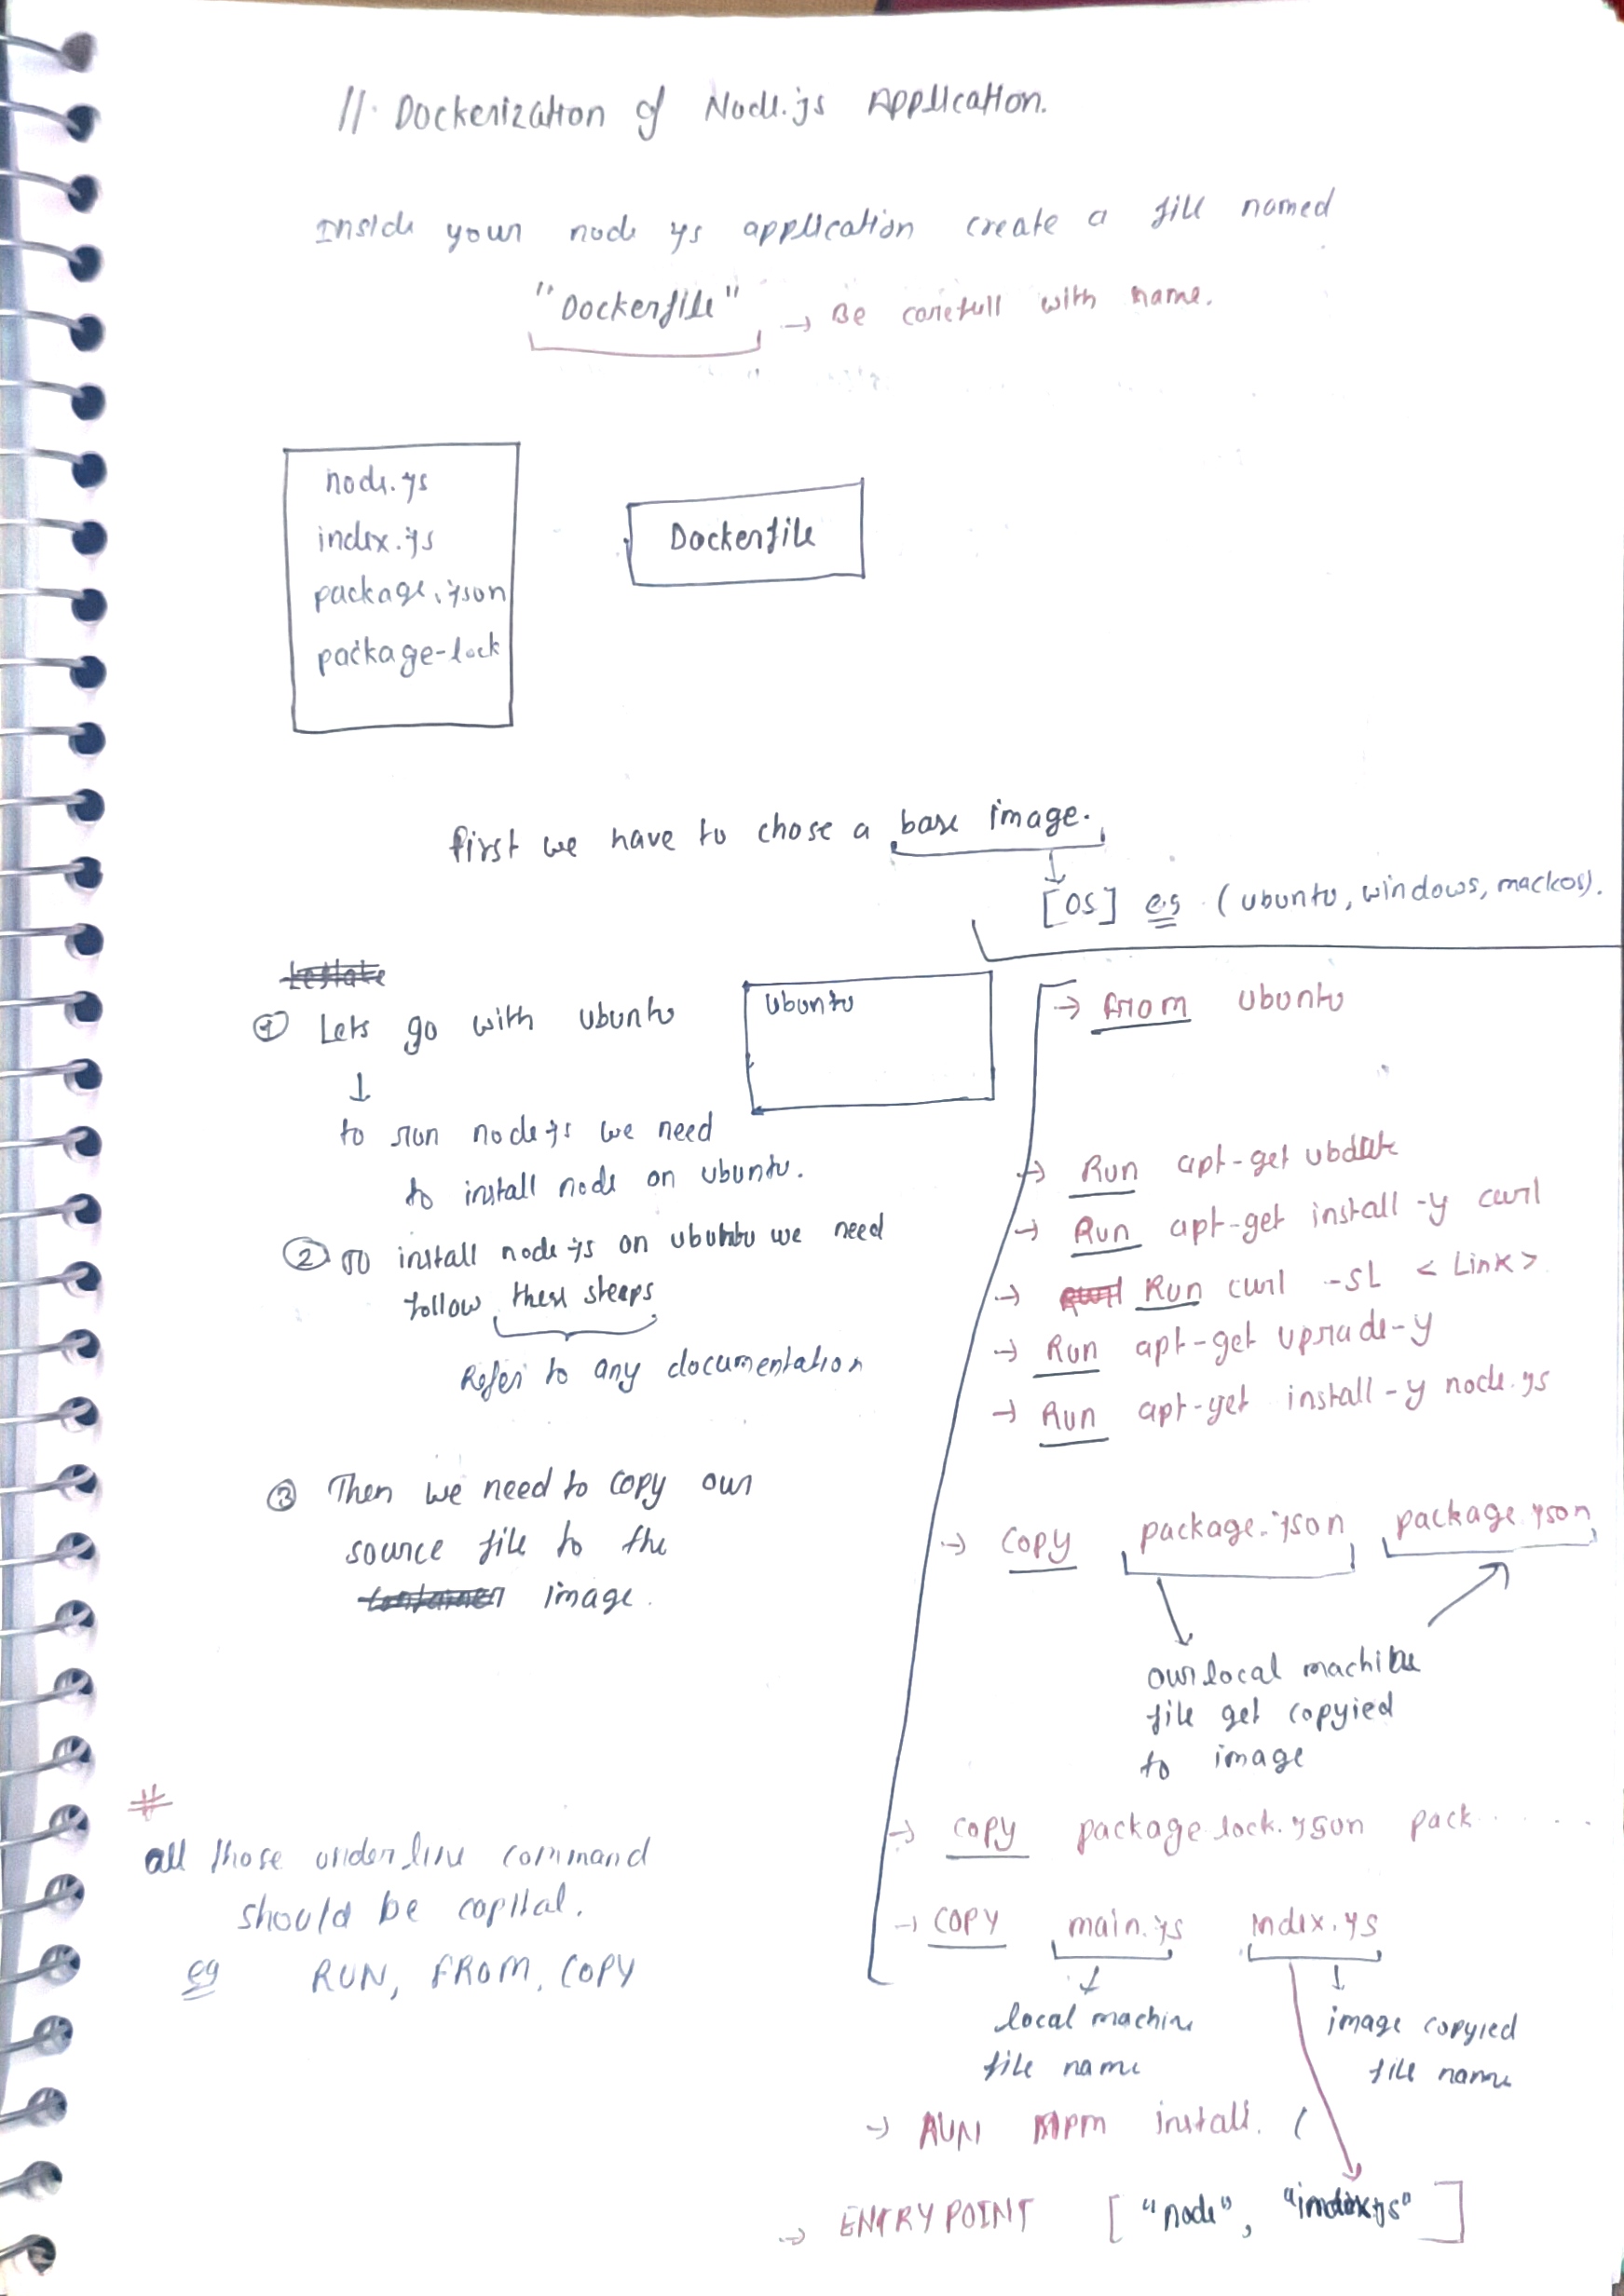 11. Dockerization of Node.js Application.
Inside your node js application create a file named
"Dockerfile" → Be carefull with name.
node.js
index.js
package.json
package-lock
Dockerfile
first we have to chose a base image.
[OS] eg (ubuntu, windows, mackos).
① Lets go with ubuntu
↓
to run node js we need
to install node on ubuntu.
② To install node js on ubuntu we need
follow these steeps
Refer to any documentation
③ Then we need to copy our
source file to the
container image.
#
all those underline command
should be capital.
eg RUN, FROM, COPY
Ubuntu
→ from ubuntu
→ Run apt-get ubdate
→ Run apt-get install -y curl
→ Run curl -sL <Link>
→ Run apt-get uprade-y
→ Run apt-get install -y node.js
→ copy package.json package.json
our local machine
file get copyied
to image
→ copy package-lock.json pack.....
→ COPY main.js index.js
local machine
file name
image copyied
file name
→ RUN npm install. (
→ ENTRYPOINT ["node", "index.js"]